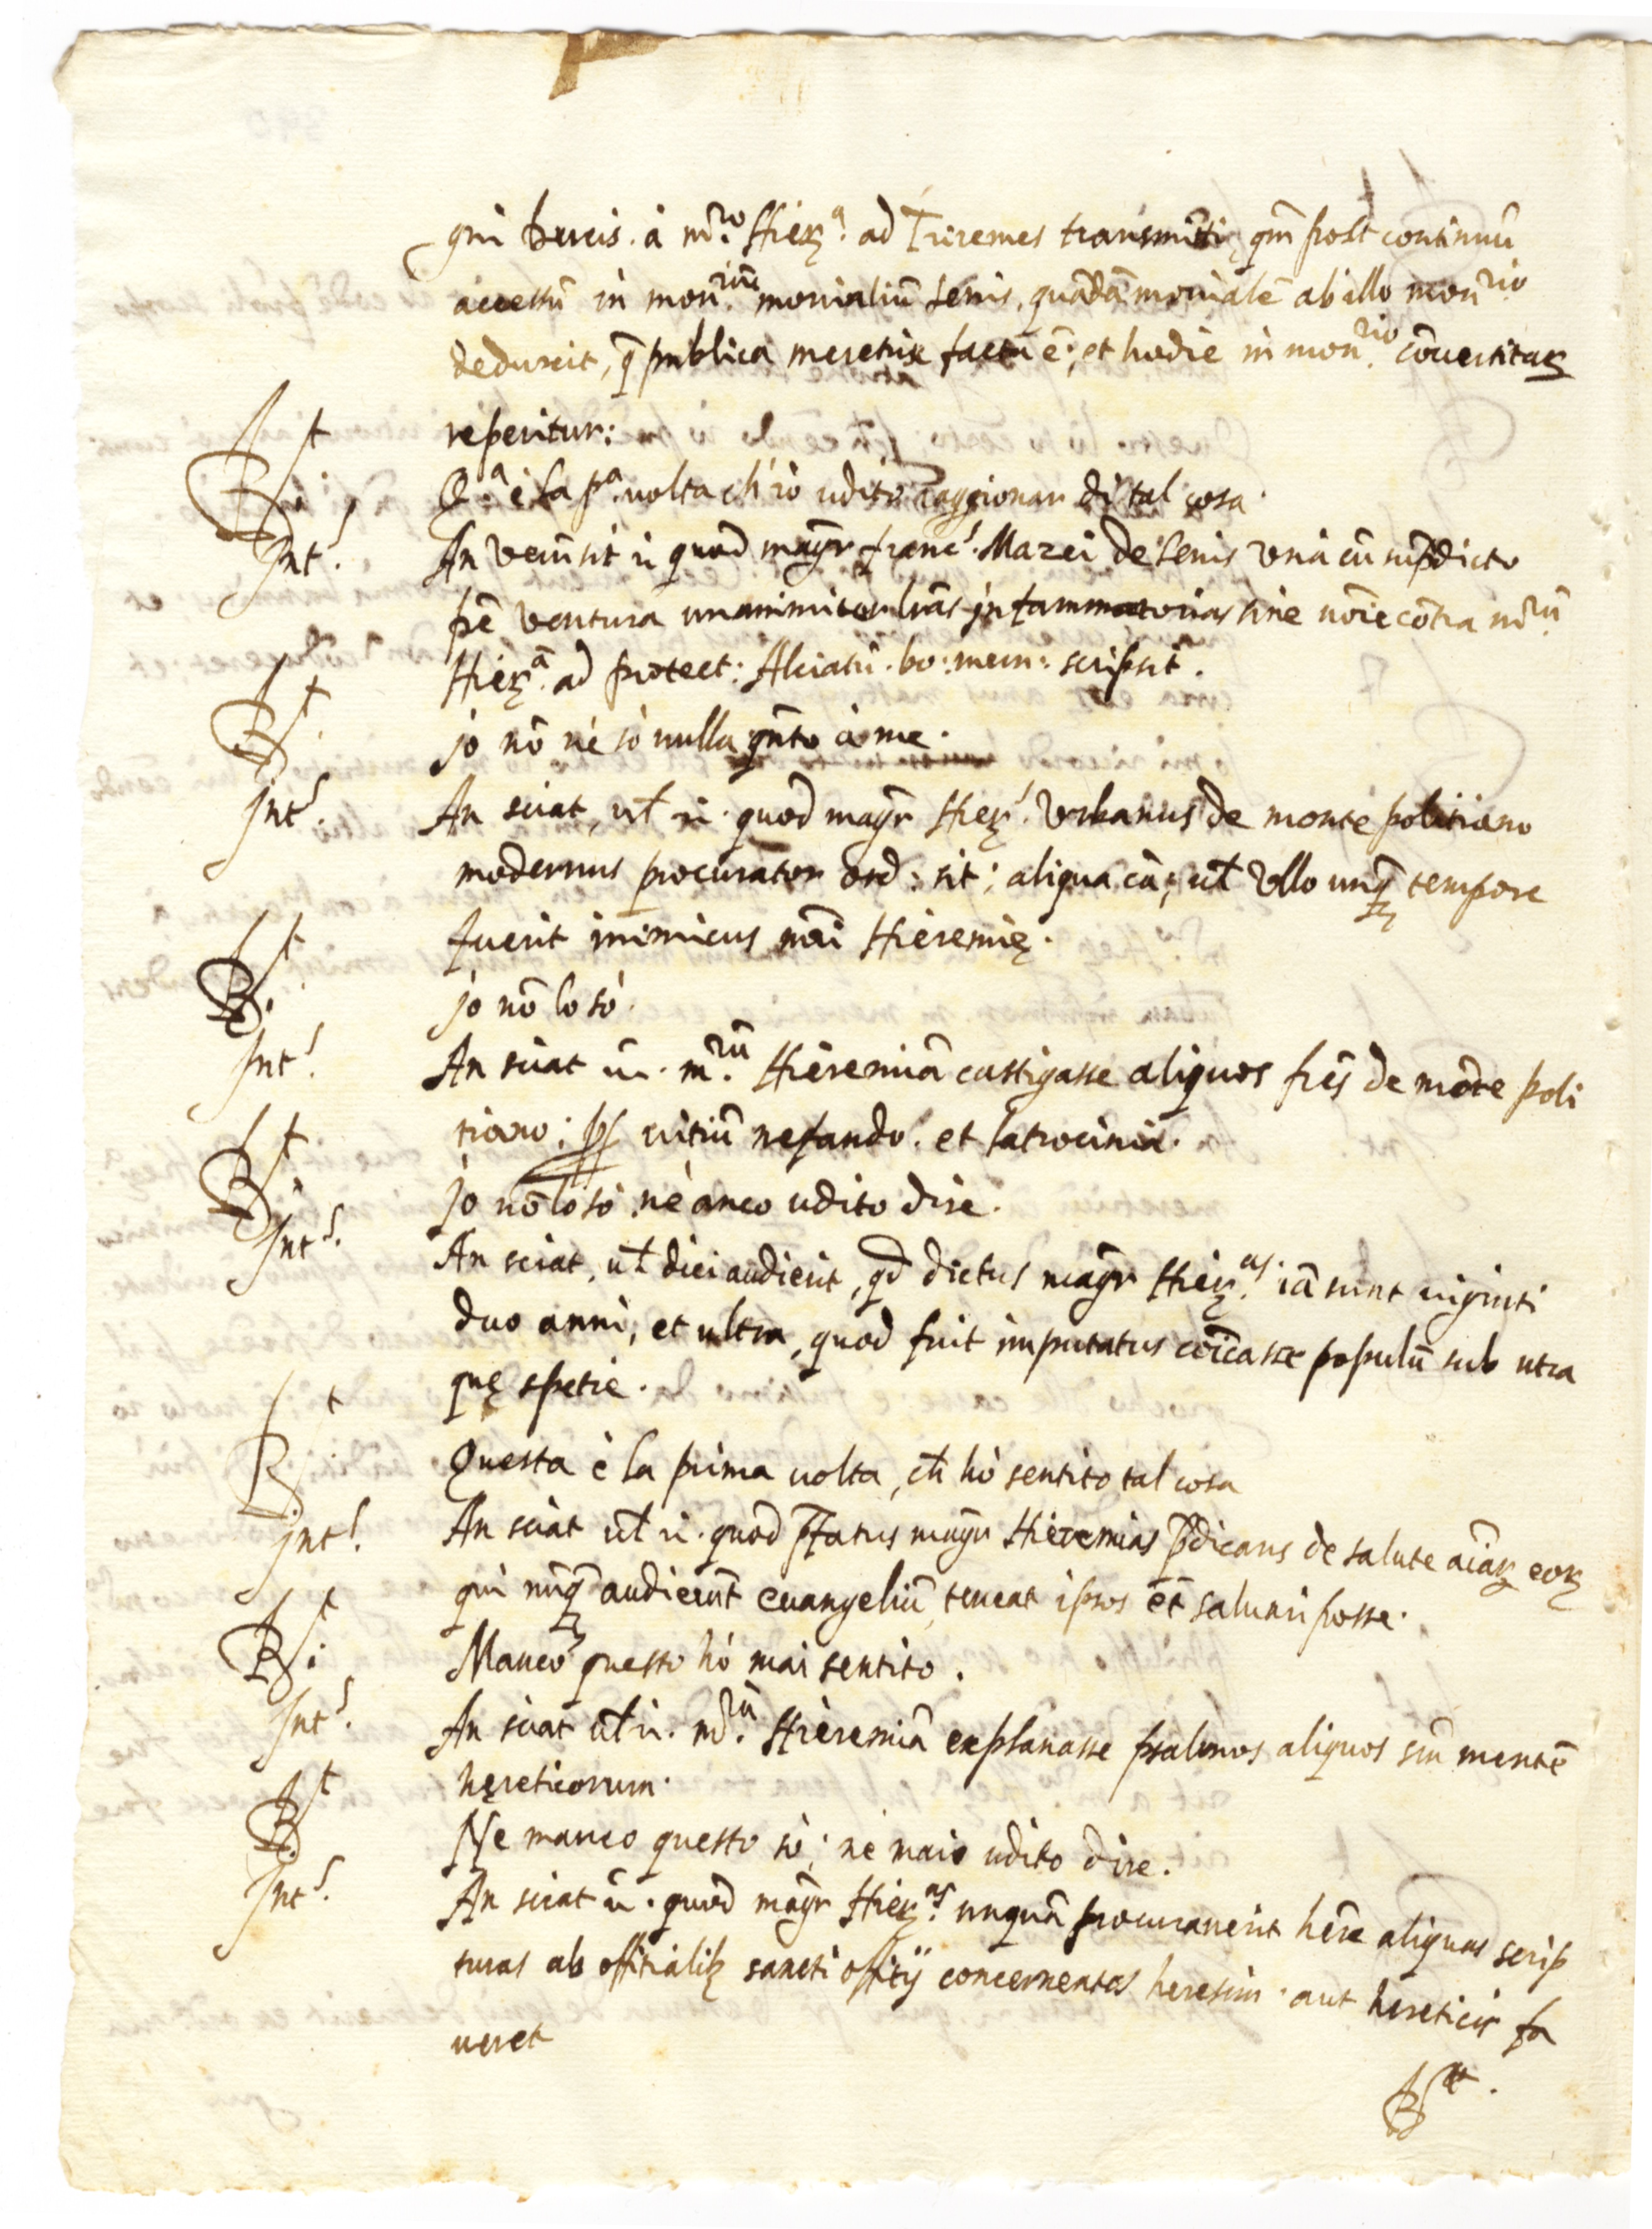 qui brevis. à m.ro Hier.a ad Triremes transmitti, qm̄ post continuū
accessū in mon.riū monialiū senis, quādā moniale ab illo mon.rio
deduxit, q̄ publica meretrix facta ē; et hodie in mon.rio cōvertitar
reperitur:
Rt. Q.a è la p.a volta ch'io udito raggionar di tal cosa.
Int.s An verū sit ū quod mag̃r franc.s Mazei de senis unà cū sup̃dicto
fr̄e ventura unanimiter lr̄as infammatorias sine nōīe cōtra m.rū
Hier.ā ad protect: Alciatū. bo: mem: scripsit.
Rt. jo nō nè sò nulla qn̄to à me.
Int.s An sciat, ul̄ ū. quod mag̃r Hier.s Urbanus de monte politiano
modernus procurator ord: sit; aliqua cā; ul̄ Ullo unq̄ tempore
fuerit inimicus mr̄i Hieremię.
Rt. jo nō lo sò.
Int.s An sciat ū. m.rū Hieremiā castigasse aliquos fr̄es de mōte poli
tiano; pp̄ vitiū nefando. et latrocinia.
Rt. jo nō lo sò, nè anco udito dire.
Int.s An sciat, ul̄ dici audierit, qđ dictus mag̃r Hier.as iā sunt viginti
duo anni; et ultra, quod fuit imputatus cōīcasse populū sub utra
quę spetie.
Rt. Questa è la prima volta, ch̄ hò sentito tal cosa
Int.s An sciat ul̄ ū. quod p̄fatus mag̃r Hieremias p̄dicans de salute aīar̄ eor̄
qui nunq̄ audierūt evangeliū, teneat ipsos ēt salvari posse.
Rt. Manco questo hò mai sentito.
Int.s An sciat ul̄ ū. m.rū Hieremiā explanasse psalmos aliquos sm̄ mentē
hęreticorum.
Rt. Ne manco questo sò; ne maio udito dire.
Int.s An sciat ū. quod mag̃r Hier.as unquā procuraverit hēre aliquas scrip
turas ab offitialib; sancti offitij concernentes heresim. aut hereticis fa
veret
Rt.